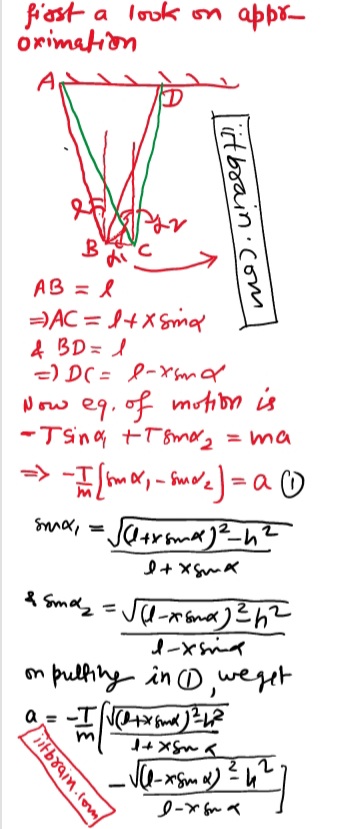 first a look on appr-
oximation
A
D
α
α2
B
α1
C
iitbrain.com
AB = l
⇒ AC = l + x sinα
& BD = l
⇒ DC = l - x sinα
Now eq. of motion is
-T sinα1 + T sinα2 = ma
⇒ -T/m [sinα1 - sinα2] = a ①
sinα1 = √((l + x sinα)² - h²) / (l + x sinα)
& sinα2 = √((l - x sinα)² - h²) / (l - x sinα)
on putting in ①, we get
a = -T/m [√((l + x sinα)² - h²) / (l + x sinα)
- √((l - x sinα)² - h²) / (l - x sinα)]
iitbrain.com